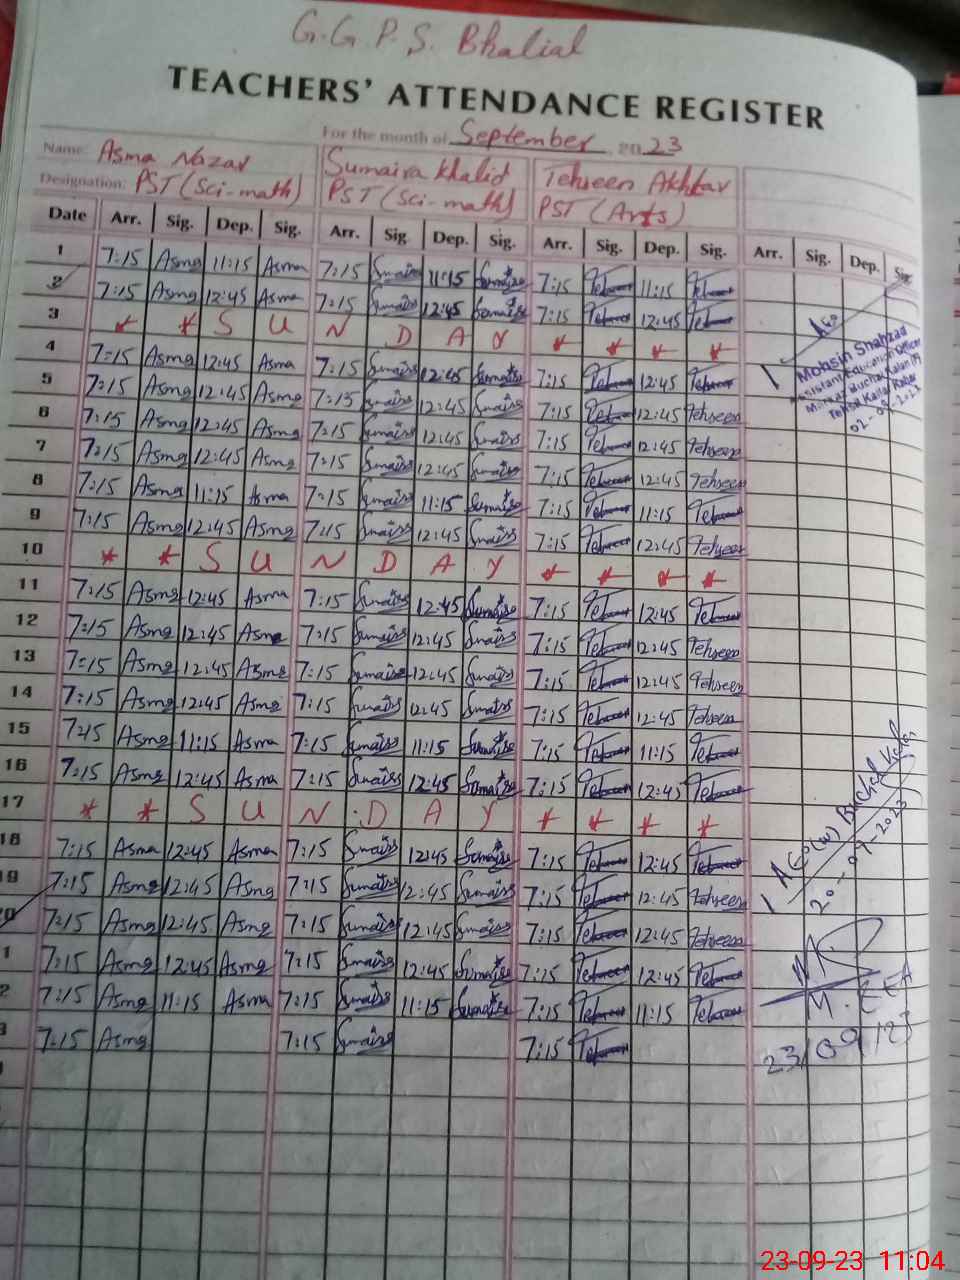 G.G.P.S. Bhalial
TEACHERS' ATTENDANCE REGISTER
For the month of September 2023
Name: Asma Nazar Sumaira Khalid Tehseen Akhtar
Designation: PST (Sci-math) PST (Sci-math) PST (Arts)
Date Arr. Sig. Dep. Sig. Arr. Sig. Dep. Sig. Arr. Sig. Dep. Sig. Arr. Sig. Dep. Sig.
1 7:15 Asma 11:15 Asma 7:15 Sumaira 11:15 Sumaira 7:15 Tehseen 11:15 Tehseen
2 7:15 Asma 12:45 Asma 7:15 Sumaira 12:45 Sumaira 7:15 Tehseen 12:45 Tehseen
3 * * S U N D A Y * * * *
4 7:15 Asma 12:45 Asma 7:15 Sumaira 12:45 Sumaira 7:15 Tehseen 12:45 Tehseen
5 7:15 Asma 12:45 Asma 7:15 Sumaira 12:45 Sumaira 7:15 Tehseen 12:45 Tehseen
6 7:15 Asma 12:45 Asma 7:15 Sumaira 12:45 Sumaira 7:15 Tehseen 12:45 Tehseen
7 7:15 Asma 12:45 Asma 7:15 Sumaira 12:45 Sumaira 7:15 Tehseen 12:45 Tehseen
8 7:15 Asma 11:15 Asma 7:15 Sumaira 11:15 Sumaira 7:15 Tehseen 11:15 Tehseen
9 7:15 Asma 12:45 Asma 7:15 Sumaira 12:45 Sumaira 7:15 Tehseen 12:45 Tehseen
10 * * S U N D A Y * * * *
11 7:15 Asma 12:45 Asma 7:15 Sumaira 12:45 Sumaira 7:15 Tehseen 12:45 Tehseen
12 7:15 Asma 12:45 Asma 7:15 Sumaira 12:45 Sumaira 7:15 Tehseen 12:45 Tehseen
13 7:15 Asma 12:45 Asma 7:15 Sumaira 12:45 Sumaira 7:15 Tehseen 12:45 Tehseen
14 7:15 Asma 12:45 Asma 7:15 Sumaira 12:45 Sumaira 7:15 Tehseen 12:45 Tehseen
15 7:15 Asma 11:15 Asma 7:15 Sumaira 11:15 Sumaira 7:15 Tehseen 11:15 Tehseen
16 7:15 Asma 12:45 Asma 7:15 Sumaira 12:45 Sumaira 7:15 Tehseen 12:45 Tehseen
17 * * S U N D A Y * * * *
18 7:15 Asma 12:45 Asma 7:15 Sumaira 12:45 Sumaira 7:15 Tehseen 12:45 Tehseen
19 7:15 Asma 12:45 Asma 7:15 Sumaira 12:45 Sumaira 7:15 Tehseen 12:45 Tehseen
20 7:15 Asma 12:45 Asma 7:15 Sumaira 12:45 Sumaira 7:15 Tehseen 12:45 Tehseen
1 7:15 Asma 12:45 Asma 7:15 Sumaira 12:45 Sumaira 7:15 Tehseen 12:45 Tehseen
2 7:15 Asma 11:15 Asma 7:15 Sumaira 11:15 Sumaira 7:15 Tehseen 11:15 Tehseen
3 7:15 Asma 7:15 Sumaira 7:15 Tehseen
AEO
Mohsin Shahzad
Assistant Education Officer
Markaz Buchal Kalan (M)
Tehsil Kallar Kahar
02-09-2023
AEO(W) Buchal Kalan
20-09-2023
M.EEA
23/09/23
23-09-23 11:04